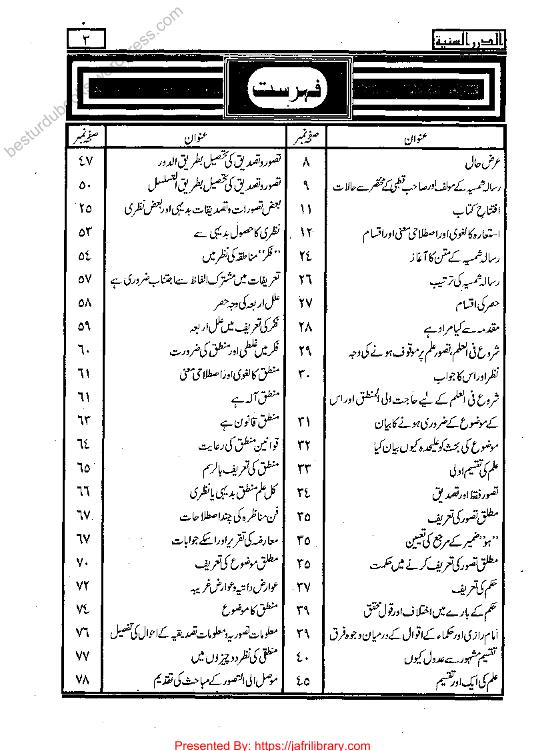 الدرر السنیۃ
۳
فہرست
عنوان صفحہ نمبر
عرض حالی ۸
رسالہ شمسیہ کے مولف اور صاحب قطبی کے مختصر سے حالات ۹
افتتاح کتاب ۱۱
استعارہ کا لغوی اور اصطلاحی معنی اور اقسام ۱۲
رسالہ شمسیہ کے متن کا آغاز ۲٤
رسالہ شمسیہ کی ترتیب ۲٦
حصر کی اقسام ۲۷
مقدمہ سے کیا مراد ہے ۲۸
شروع فی العلم، تصور علم پر موقوف ہونے کی وجہ ۲۹
نظر اور اس کا جواب ۳۰
شروع فی العلم کے لیے حاجت والی المنطق اور اس
کے موضوع کے ضروری ہونے کا بیان ۳۱
موضوع کی بحث کو علیحدہ کیوں بیان کیا ۳۲
علم کی تقسیم اولی ۳۳
تصور فقط اور تصدیق ۳٤
مطلق تصور کی تعریف ۳۵
"ہو" ضمیر کے مرجع کی تعیین ۳۵
مطلق تصور کی تعریف کرنے میں حکمت ۳۵
حکم کی تعریف ۳۷
حکم کے بارے میں اختلاف اور قول محقق ۳۹
امام رازی اور حکماء کے اقوال کے درمیان وجوہ فرق ۳۹
تقسیم مشہور سے عدول کیوں ٤۰
علم کی ایک اور تقسیم ٤۵
عنوان صفحہ نمبر
تصور و تصدیق کی تحصیل بطریق الدور ٤۷
تصور و تصدیق کی تحصیل بطریق التسلسل ۵۰
بعض تصورات و تصدیقات بدیہی اور بعض نظری ۲۵
نظری کا حصول بدیہی سے ۵۳
"فکر" مناطقہ کی نظر میں ۵٤
تعریفات میں مشترک الفاظ سے اجتناب ضروری ہے ۵۷
علل اربعہ کی وجہ حصر ۵۸
فکر کی تعریف میں علل اربعہ ۵۹
فکر میں غلطی اور منطق کی ضرورت ٦۰
منطق کا لغوی اور اصطلاحی معنی ٦۱
منطق آلہ ہے ٦۱
منطق قانون ہے ٦۳
قوانین منطق کی رعایت ٦٤
منطق کی تعریف بالرسم ٦۵
کل علم منطق بدیہی یا نظری ٦٦
فن مناظرہ کی چند اصطلاحات ٦۷
معارضہ کی تقریر اور اسکے جوابات ٦۷
مطلق موضوع کی تعریف ۷۰
عوارض ذاتیہ و عوارض غریبہ ۷۲
منطق کا موضوع ۷٤
معلومات تصوریہ و معلومات تصدیقیہ کے احوال کی تفصیل ۷٦
منطقی کی نظر دو چیزوں میں ۷۷
موصل الی التصور کے مباحث کی تقدیم ۷۸
besturdubooks.wordpress.com
Presented By: https://jafrilibrary.com